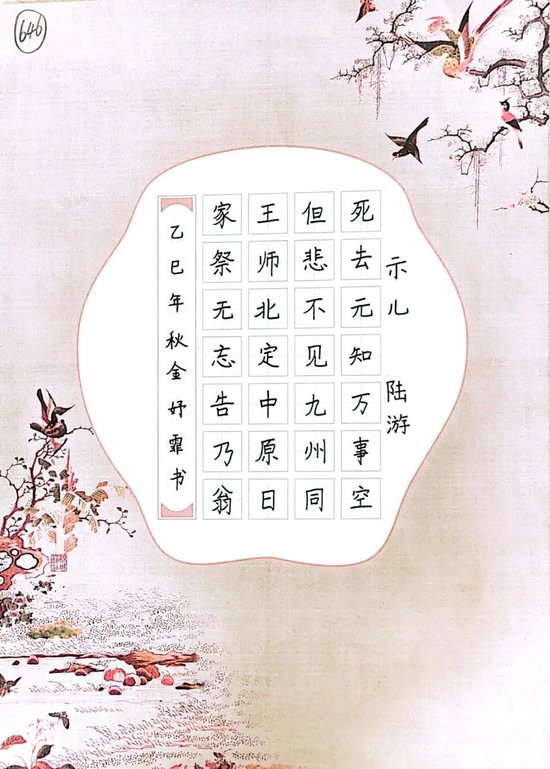 646
示儿 陆游
死去元知万事空
但悲不见九州同
王师北定中原日
家祭无忘告乃翁
乙巳年秋金妤霏书